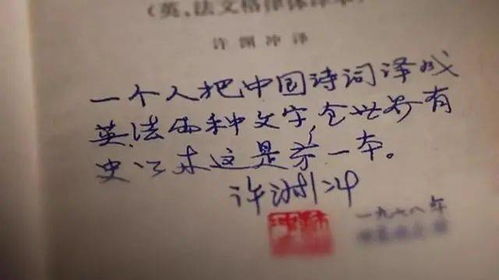 (英、法文格律体译本)
许渊冲译
一个人把中国诗词译成
英法两种文字,全世界有
史以来这是第一本。
许渊冲
一九七八年